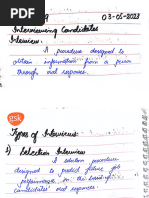 9
03-05-2023
Interviewing Candidates
Interview:
A procedure designed to
obtain information from a person
through oral responses.
gsk
Types of Interviews:
1) Selection Interview
A selection procedure
designed to predict future job
performance on the basis of
candidates' oral responses.